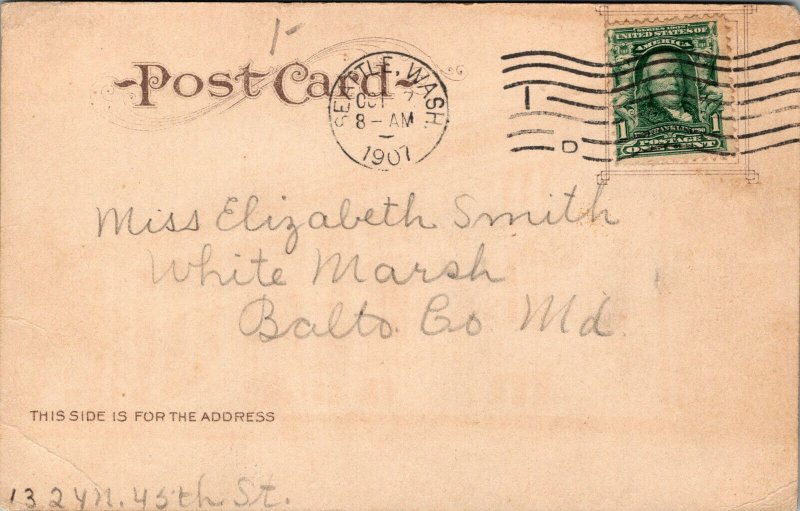 1-
POST CARD
SEATTLE, WASH.
OCT 7
8 - AM
1907
I
D
SERIES 1902
UNITED STATES OF
AMERICA
1 FRANKLIN 1
POSTAGE
ONE CENT
Miss Elizabeth Smith
White Marsh
Balto. Co. Md.
THIS SIDE IS FOR THE ADDRESS
1324 N. 45th St.